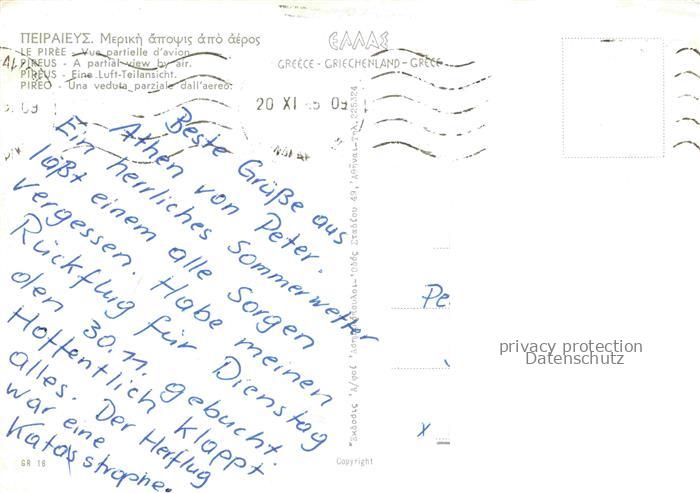 ΠΕΙΡΑΙΕΥΣ. Μερική ἄποψις ἀπό ἀέρος
LE PIRÈE - Vue partielle d'avion
PIREUS - A partial view by air.
PIRÉUS - Eine Luft-Teilansicht.
PIREO - Una veduta parziale dall'aereo.
ΕΛΛΑΣ
GREECE - GRIECHENLAND - GRÈCE
20 XI
Beste Grüße aus
Athen von Peter.
Ein herrliches Sommerwetter
läßt einem alle Sorgen
vergessen. Habe meinen
Rückflug für Dienstag
den 30.11. gebucht.
Hoffentlich klappt
alles. Der Herflug
war eine
Katasstrophe.
GR 16
Copyright
Pe
x
privacy protection
Datenschutz